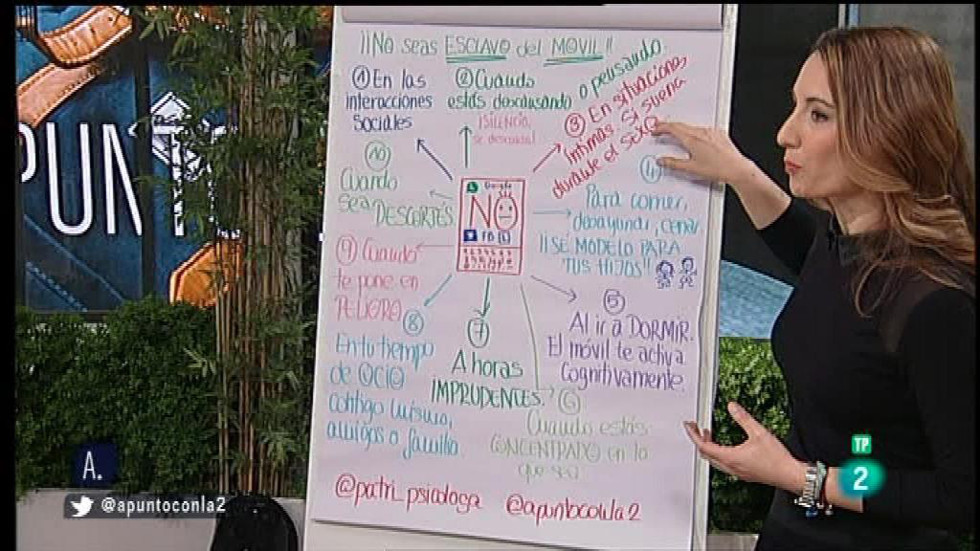 ¡¡NO seas ESCLAVO del MÓVIL!!
① En las
interacciones
Sociales
② Cuando
estás descansando o pensando.
¡SILENCIO,
se descansa!
③ En situaciones
íntimas. Si suena
durante el SEXO
④
Para comer,
desayunar, cenar.
¡¡SÉ MODELO PARA
TUS HIJOS!!
⑤
Al ir a DORMIR.
El móvil te activa
Cognitivamente.
⑥
Cuando estás
CONCENTRADO en lo
que sea
⑦
A horas
IMPRUDENTES.
⑧
En tu tiempo
de OCIO
contigo mismo,
amigos o familia
⑨ Cuando
te pone en
PELIGRO
⑩
Cuando
sea DESCORTÉS
Google
NO
@patri_psicologa @apuntoconla2
PUNT
A.
@apuntoconla2
TP
2